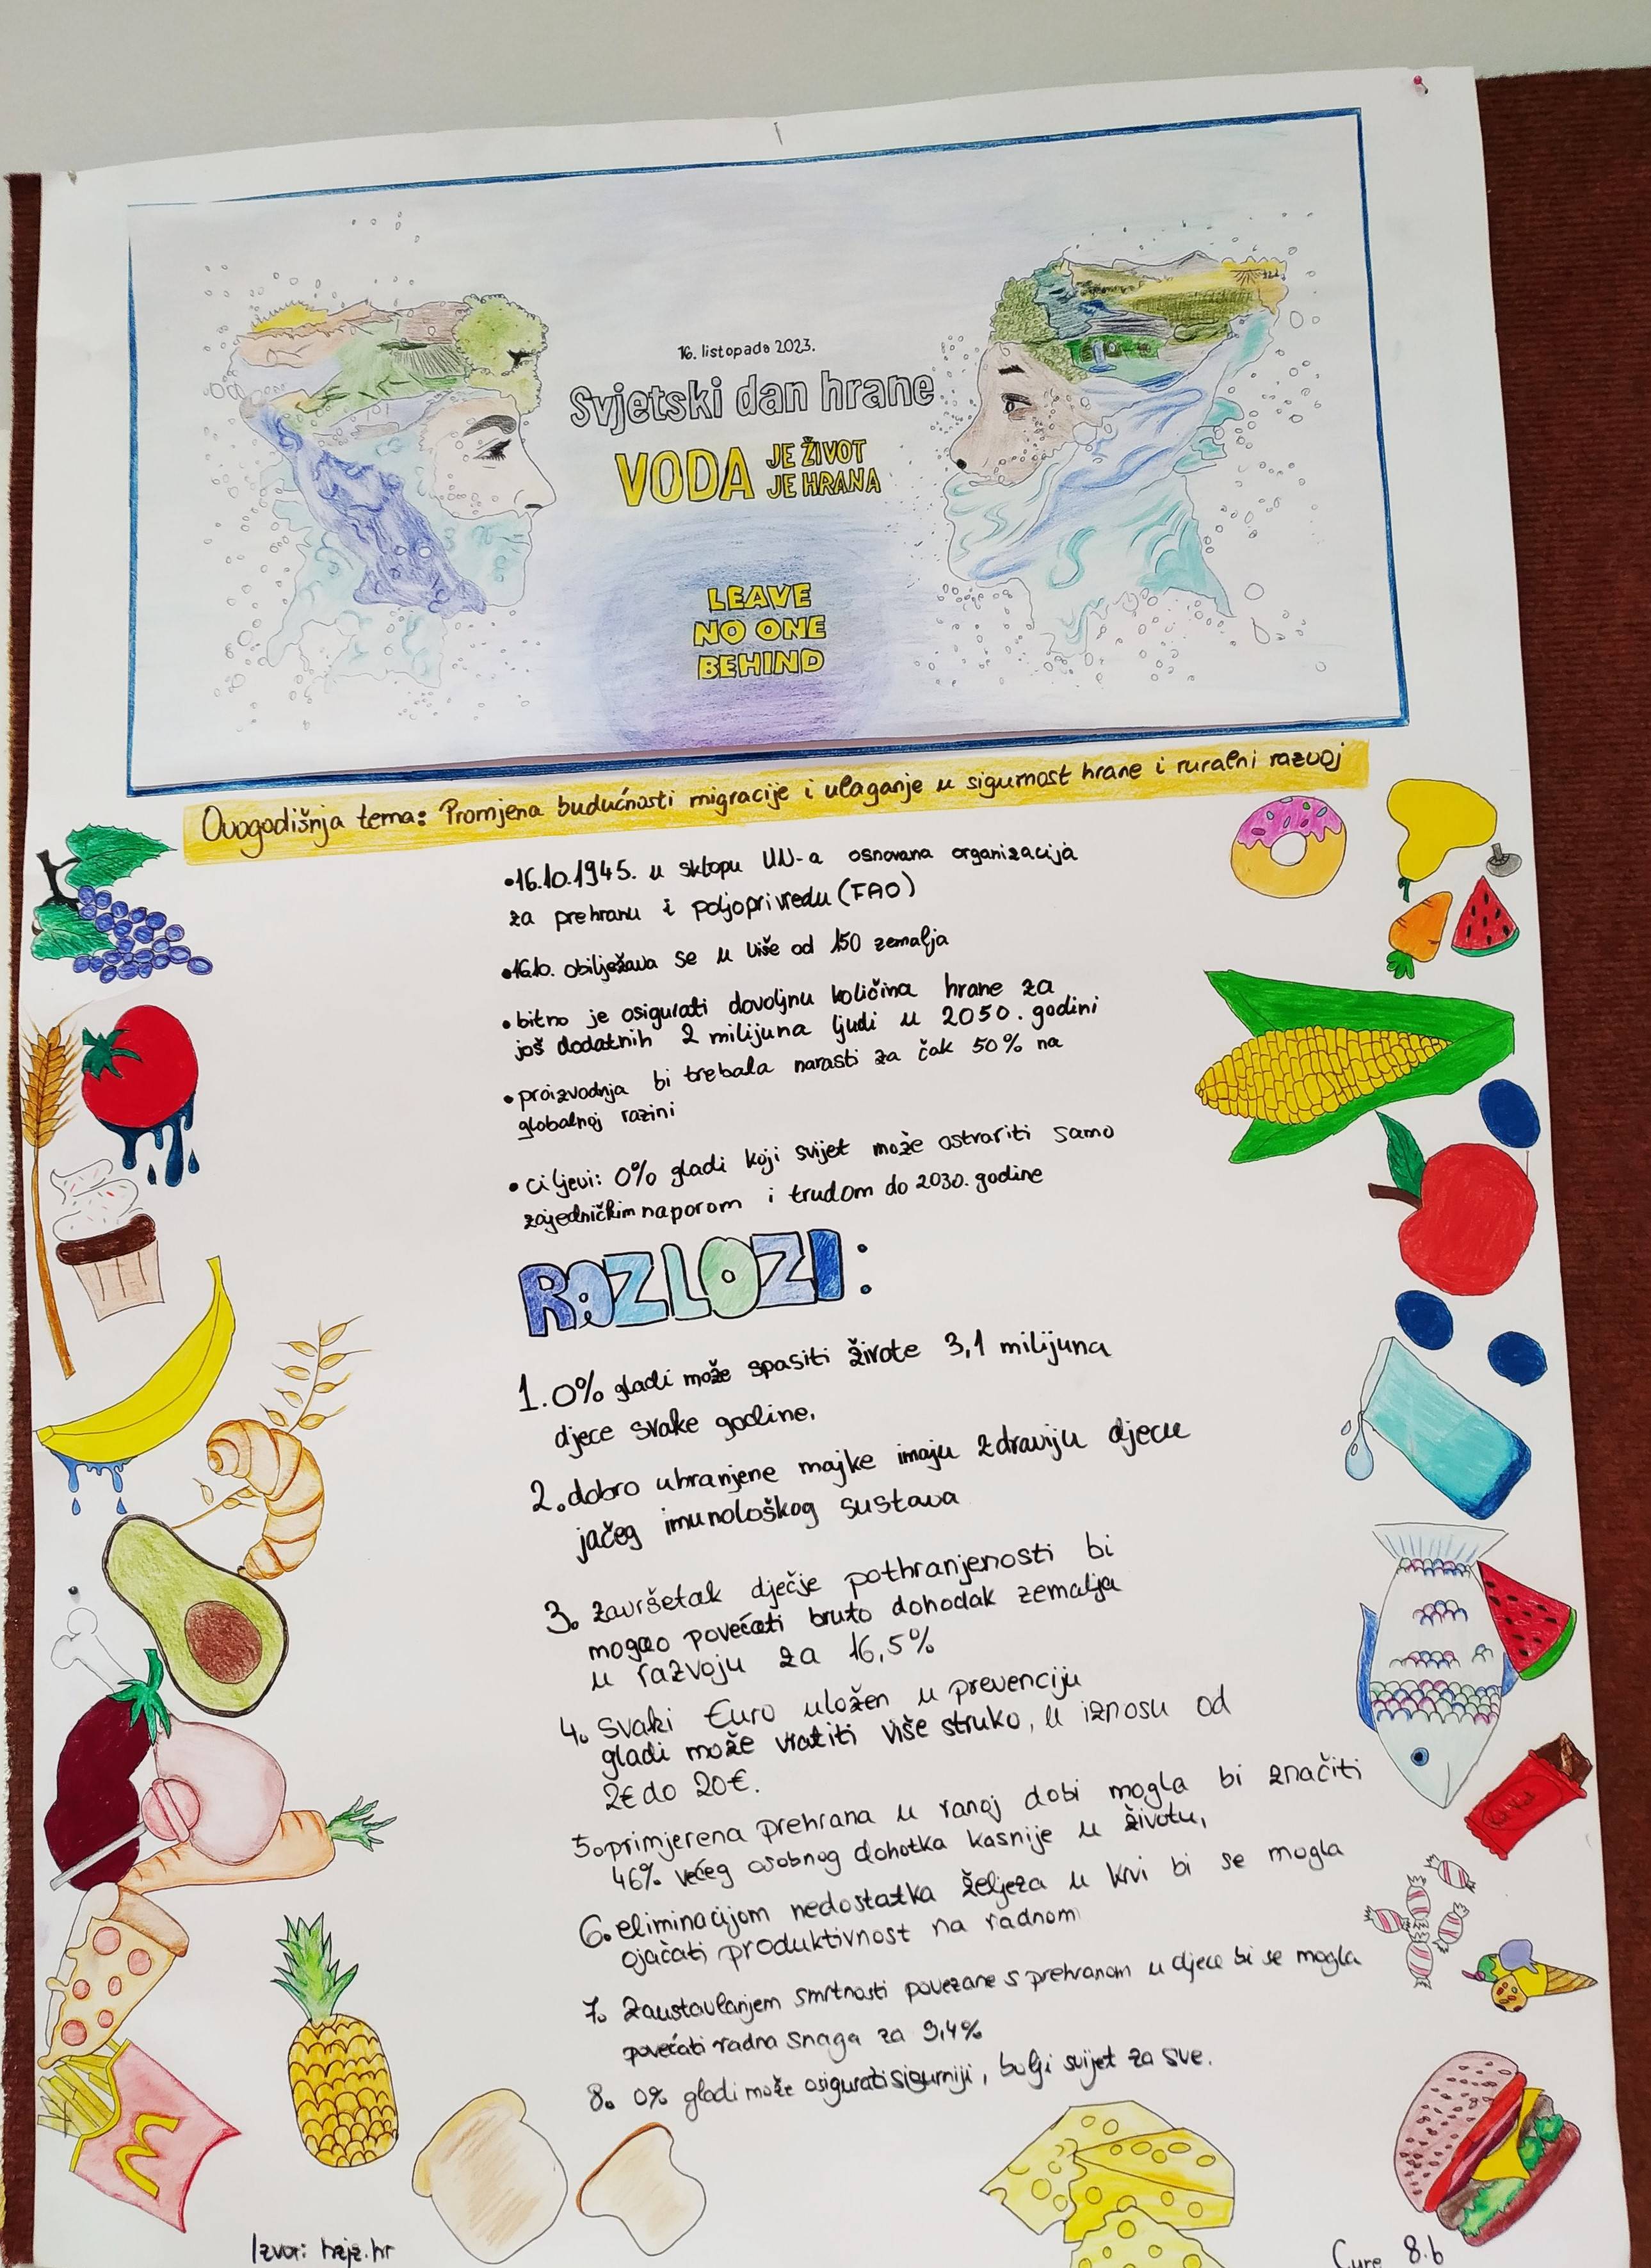 16. listopada 2023.
Svjetski dan hrane
VODA JE ŽIVOT
JE HRANA
LEAVE
NO ONE
BEHIND
Ovogodišnja tema: Promjena budućnosti migracije i ulaganje u sigurnost hrane i ruralni razvoj
•16.10.1945. u sklopu UN-a osnovana organizacija
za prehranu i poljoprivredu (FAO)
•16.10. obilježava se u više od 150 zemalja
•bitno je osigurati dovoljnu količina hrane za
još dodatnih 2 milijuna ljudi u 2050. godini
•proizvodnja bi trebala narasti za čak 50% na
globalnoj razini
•ciljevi: 0% gladi koji svijet može ostvariti samo
zajedničkim naporom i trudom do 2030. godine
RAZLOZI:
1. 0% gladi može spasiti živote 3,1 milijuna
djece svake godine.
2. dobro uhranjene majke imaju zdraviju djecu
jačeg imunološkog sustava
3. završetak dječje pothranjenosti bi
mogao povećati bruto dohodak zemalja
u razvoju za 16,5%
4. svaki Euro uložen u prevenciju
gladi može vratiti više struko, u iznosu od
2€ do 20€.
5. primjerena prehrana u ranoj dobi mogla bi značiti
46% većeg osobnog dohotka kasnije u životu,
6. eliminacijom nedostatka željeza u krvi bi se mogla
ojačati produktivnost na radnom
7. Zaustavlanjem smrtnosti povezane s prehranom u djece bi se mogla
povećati radna snaga za 9,4%
8. 0% gladi može osigurati sigurniji, bolji svijet za sve.
Kit Kat
M
Izvor: hzjz.hr
Cure 8.b